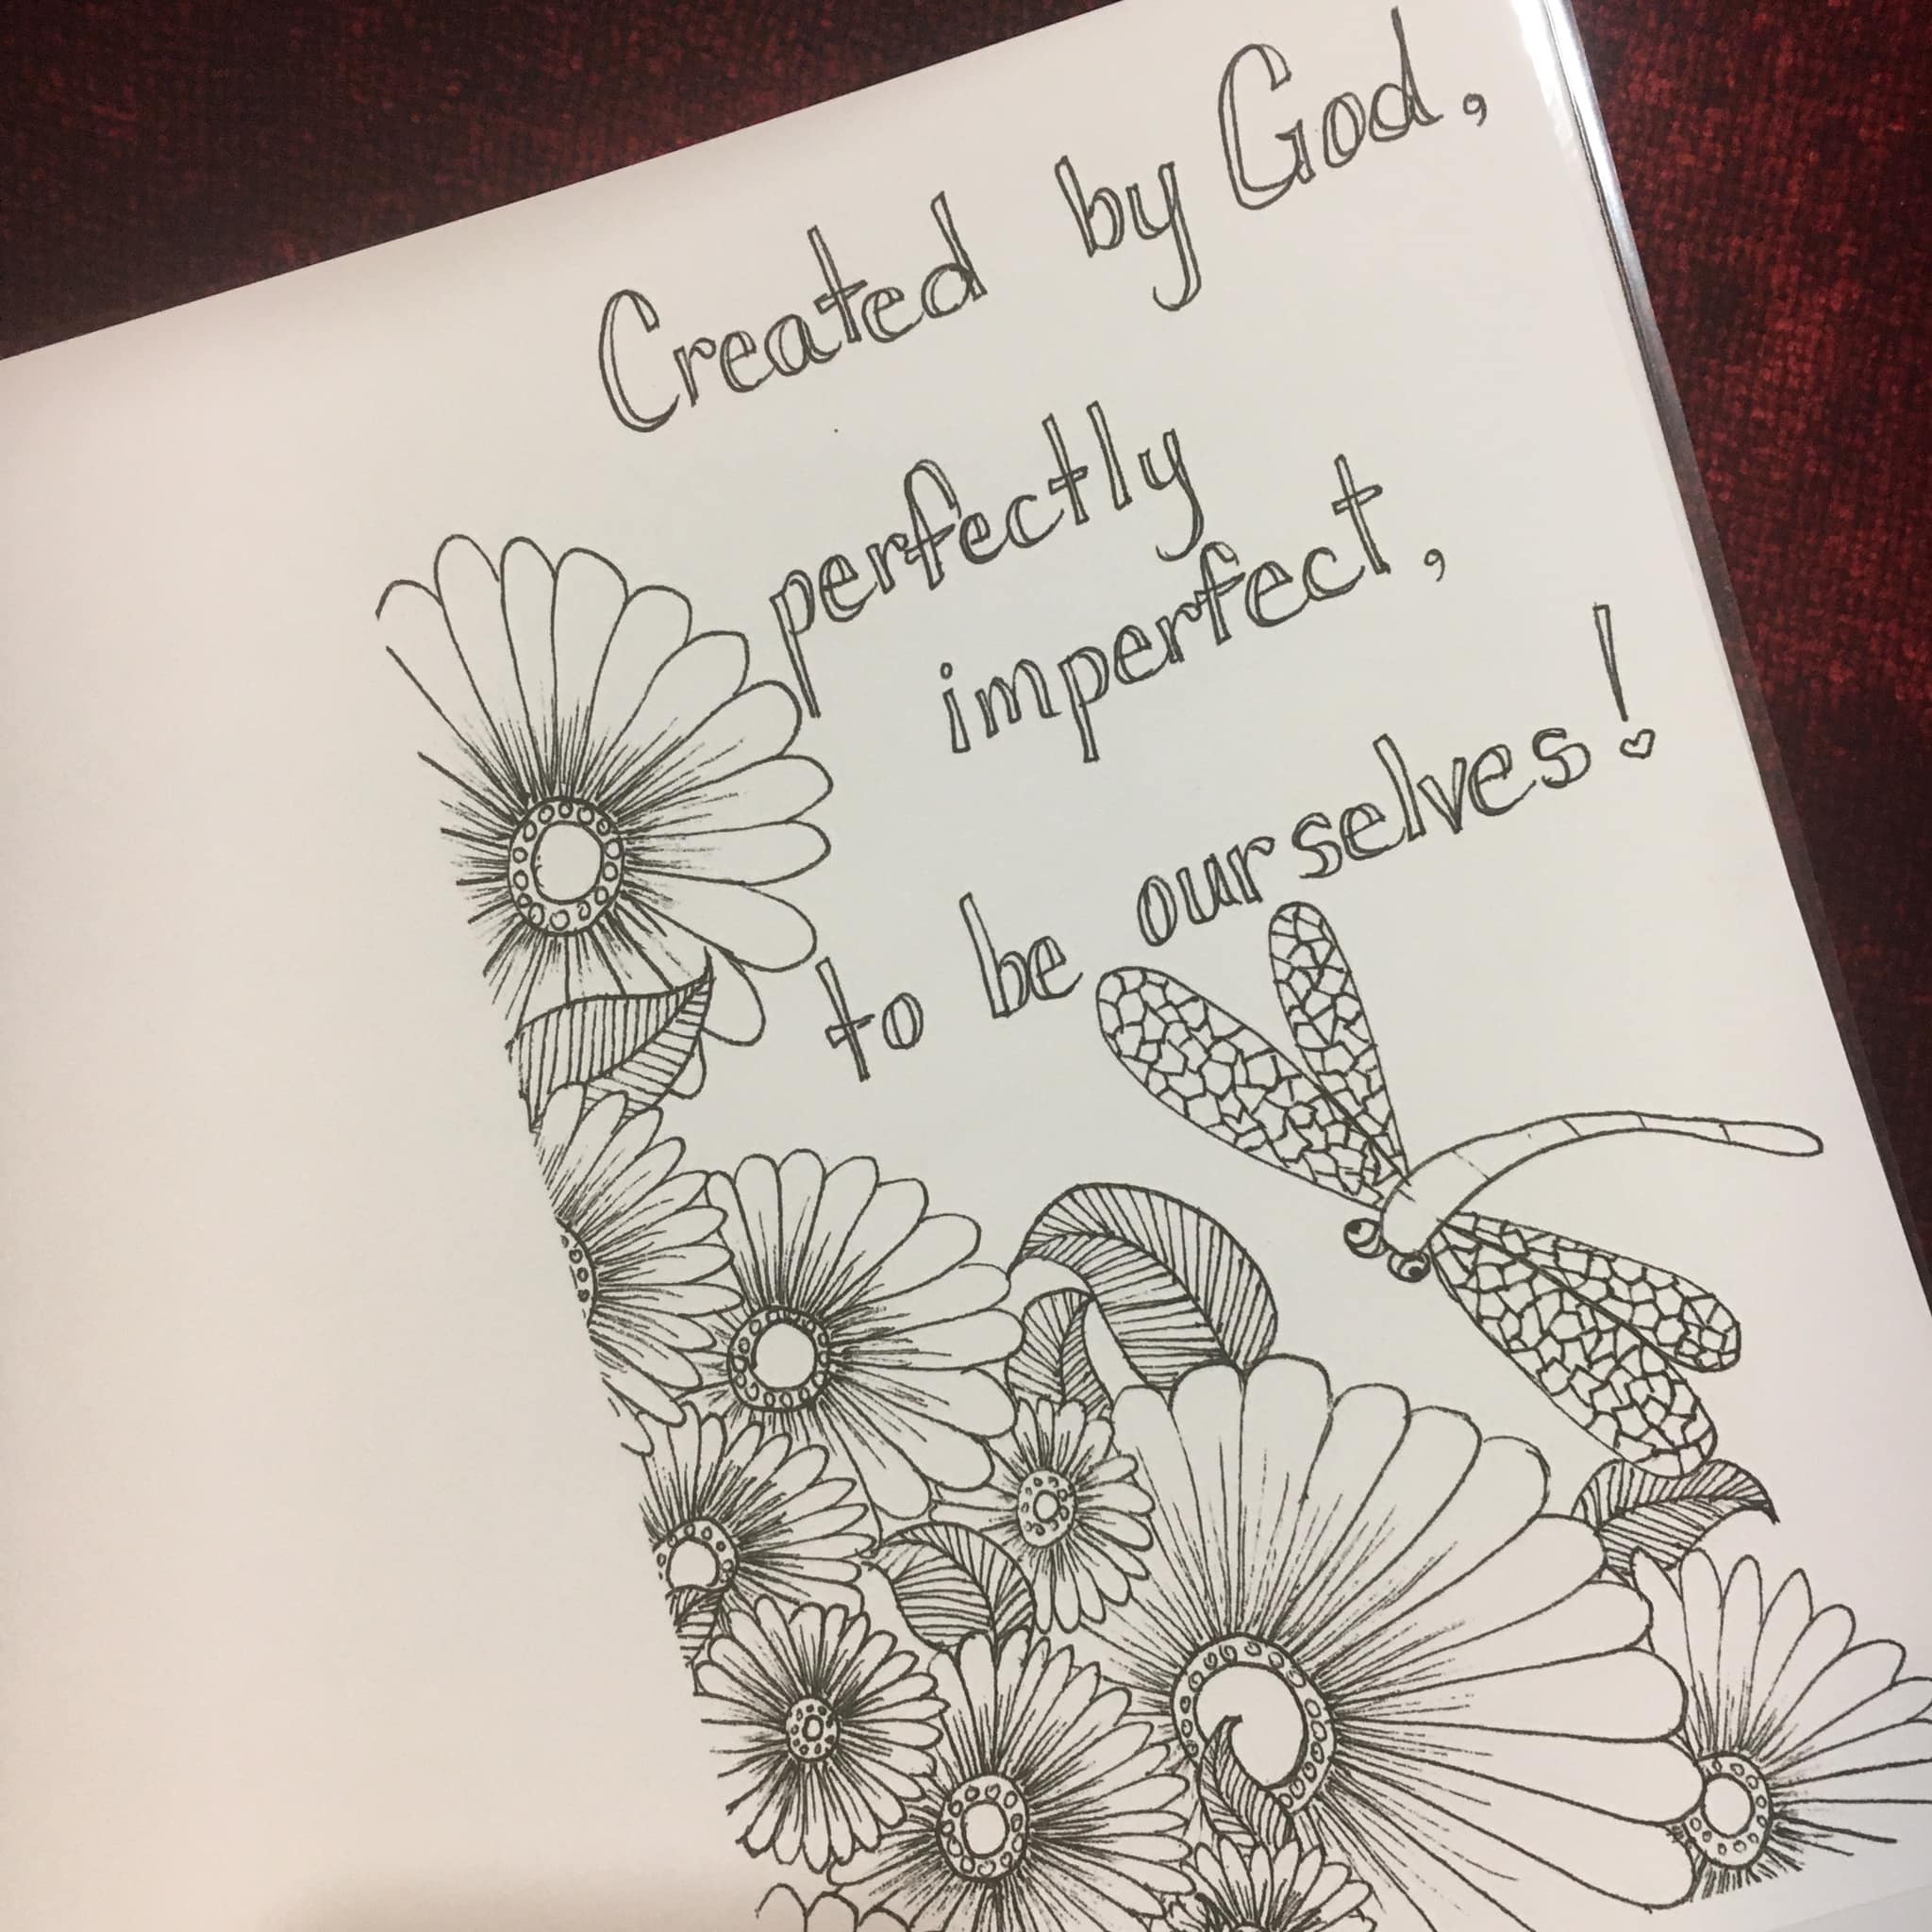 Created by God,
perfectly
imperfect,
to be ourselves!